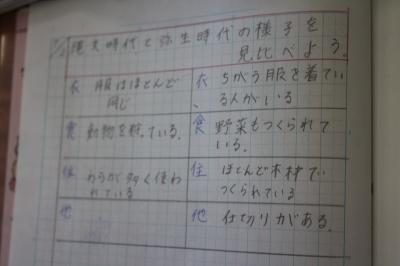 縄文時代と弥生時代の様子を
見比べよう。
衣 服はほとんど
同じ
衣 ちがう服を着てい
る人がいる
食 動物を狩っている。
食 野菜もつくられて
いる。
住 わらが多く使わ
れている
住 ほとんど木材で
つくられている
他
他 仕切りがある。